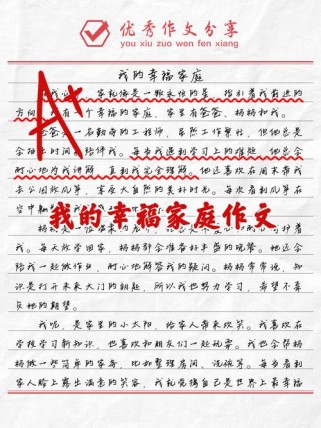 优秀作文分享
you xiu zuo wen fen xiang
我的幸福家庭
A+
家就像是一颗永恒的星，指引着我前进的
方向。我有一个幸福的家庭，家里有爸爸、妈妈和我。
爸爸是一名勤奋的工程师，虽然工作繁忙，但他总是
会抽出时间陪伴我。每当我遇到学习上的难题，他总会
耐心地为我讲解，直到我完全理解。他还喜欢在周末带我
去公园放风筝，享受大自然的美好时光。每次看到风筝在
空中
我的幸福家庭作文
我。每天放学回家，妈妈都会准备好丰盛的晚餐。她还会
陪我一起做作业，耐心地解答我的疑问。妈妈常常说，知
识是打开未来大门的钥匙，所以我也努力学习，希望不辜
负她的期望。
我呢，是家里的小太阳，给家人带来欢笑。我喜欢在
学校学习新知识，也喜欢和朋友们一起玩耍。我也会帮妈
妈做一些简单的家务，比如整理房间、洗碗等。每当看到
家人脸上露出满意的笑容，我就觉得自己是世界上最幸福